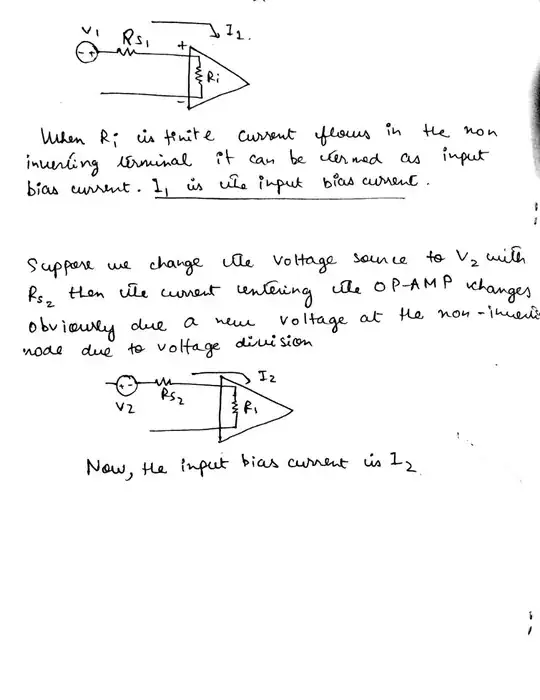 V1 Rs1 + I1.
Ri
-
When Ri is finite current flows in the non
inverting terminal it can be termed as input
bias current. I1 is the input bias current.
Suppose we change the voltage source to V2 with
Rs2 then the current entering the OP-AMP changes
obviously due a new voltage at the non-inverting
node due to voltage division
I2
V2 Rs2 Ri
Now, the input bias current is I2